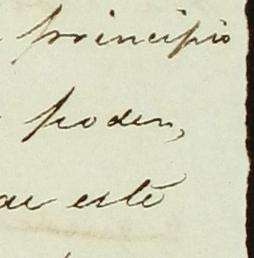 principio
poder,
que esté